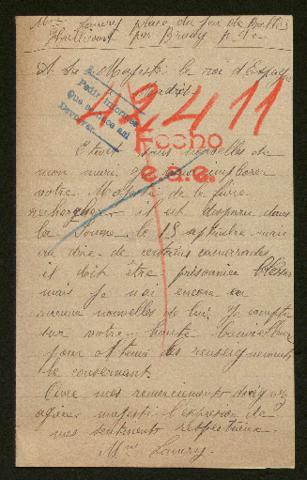 Mme Lamery place du jeu de Balle
Haillicourt par Bruay P. de
A Sa Majesté le roi d'Espagne
Madrid
2411
Pedir informes
Devolver
Fecho
e.a.e.
sans nouvelles de
mon mari je viens implorer
votre Majesté de le faire
rechercher il est disparu dans
la Somme le 18 septembre mais
au dire de certains camarades
il doit être prisonnier blessé
mais je n'ai encore eu
aucune nouvelles de lui. Je compte
sur votre haute bienveillance
pour obtenir des renseignements
le concernant.
Avec mes remerciements daignez
agréer majesté l'expression de
mes sentiments respectueux
Mme Lamery.